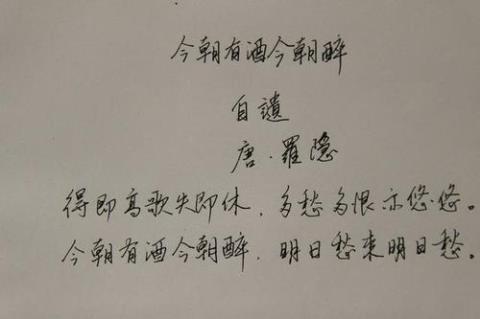 今朝有酒今朝醉
自遣
唐·羅隐
得即高歌失即休，多愁多恨亦悠悠。
今朝有酒今朝醉，明日愁来明日愁。